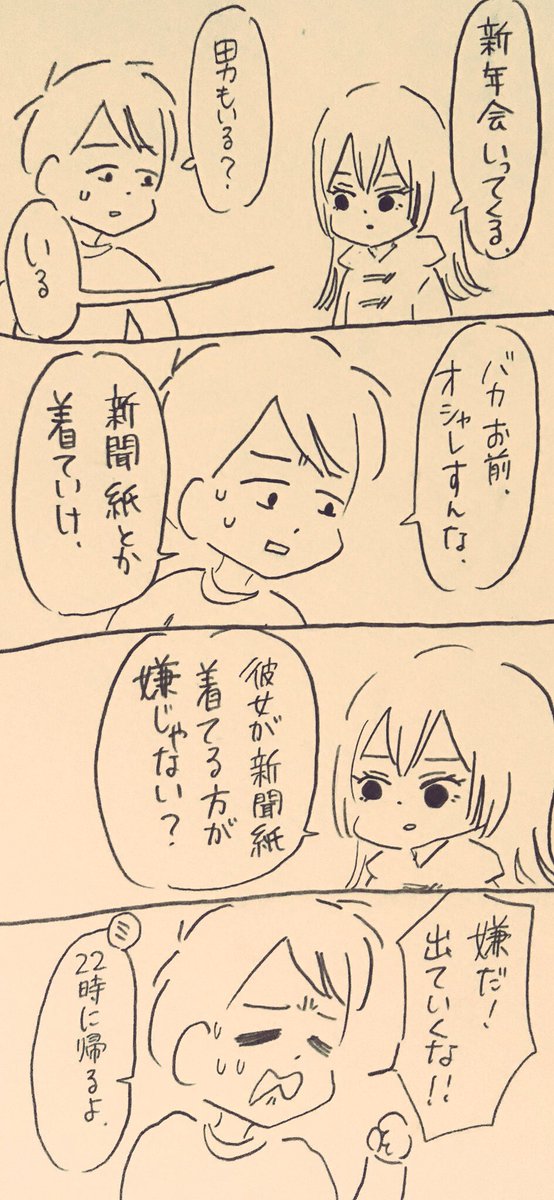 新年会いってくる.
男もいる?
いる
バカお前.
オシャレすんな.
新聞紙とか
着ていけ.
彼女が新聞紙
着てる方が
嫌じゃない?
嫌だ!
出ていくな!!
22時に帰るよ.